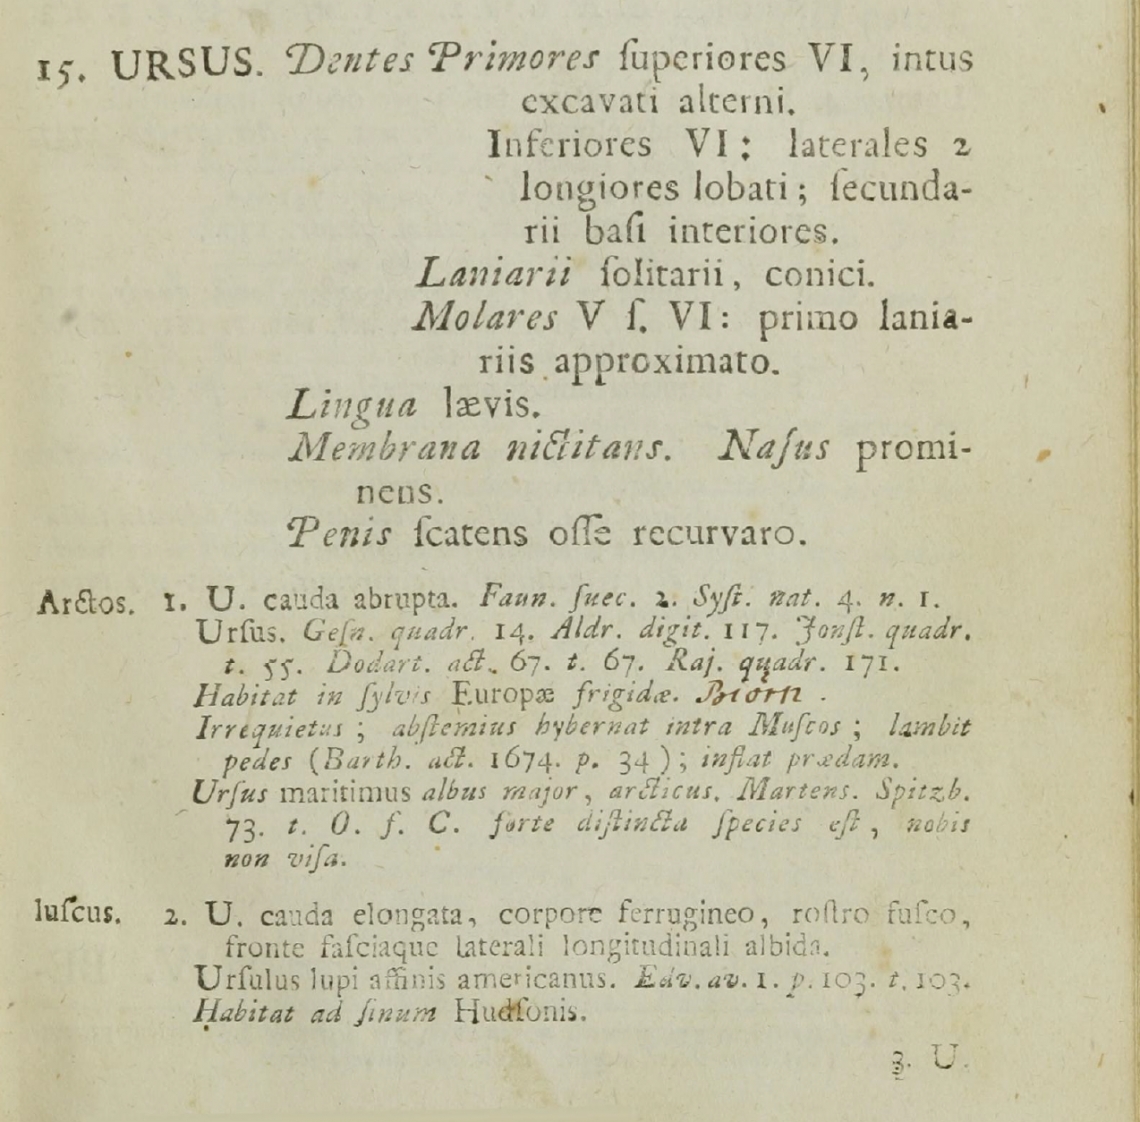 15. URSUS. Dentes Primores ſuperiores VI, intus
excavati alterni.
Inferiores VI: laterales 2
longiores lobati; ſecunda-
rii baſi interiores.
Laniarii ſolitarii, conici.
Molares V ſ. VI: primo lania-
riis approximato.
Lingua lævis.
Membrana nictitans. Naſus promi-
nens.
Penis ſcatens oſſe recurvaro.
Arctos. 1. U. cauda abrupta. Faun. ſuec. 2. Syſt. nat. 4. n. 1.
Urſus. Geſn. quadr. 14. Aldr. digit. 117. Jonſt. quadr.
t. 55. Dodart. act. 67. t. 67. Raj. quadr. 171.
Habitat in ſylvis Europæ frigidæ. Biorn.
Irrequietus; abſtemius hybernat intra Muſcos; lambit
pedes (Barth. act. 1674. p. 34); inflat prædam.
Urſus maritimus albus major, arcticus. Martens. Spitzb.
73. t. O. f. C. forte diſtincta ſpecies eſt, nobis
non viſa.
luſcus. 2. U. cauda elongata, corpore ferrugineo, roſtro fuſco,
fronte faſciaque laterali longitudinali albida.
Urſulus lupi affinis americanus. Edv. av. 1. p. 103. t. 103.
Habitat ad ſinum Hudſonis.
3. U.